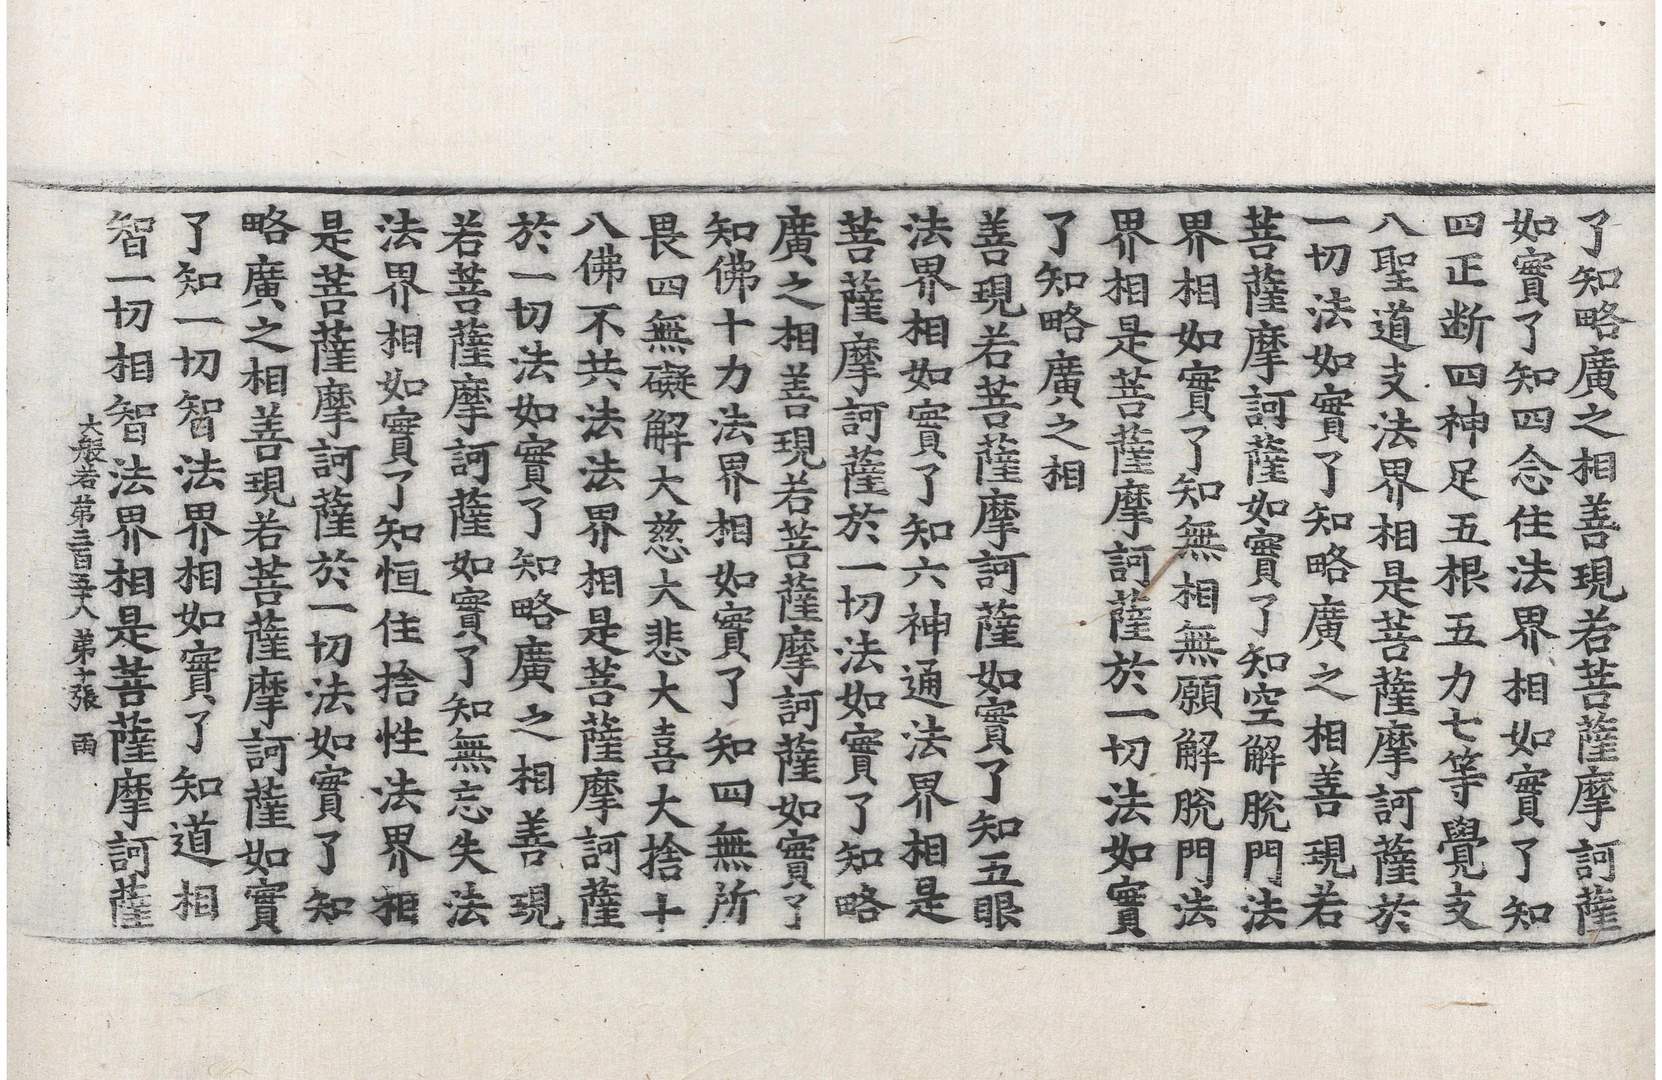 了知略廣之相善現若菩薩摩訶薩
如實了知四念住法界相如實了知
四正断四神足五根五力七等覺支
八聖道支法界相是菩薩摩訶薩於
一切法如實了知略廣之相善現若
菩薩摩訶薩如實了知空解脫門法
界相如實了知無相無願解脫門法
界相是菩薩摩訶薩於一切法如實
了知略廣之相
善現若菩薩摩訶薩如實了知五眼
法界相如實了知六神通法界相是
菩薩摩訶薩於一切法如實了知略
廣之相善現若菩薩摩訶薩如實了
知佛十力法界相如實了知四無所
畏四無礙解大慈大悲大喜大捨十
八佛不共法法界相是菩薩摩訶薩
於一切法如實了知略廣之相善現
若菩薩摩訶薩如實了知無忘失法
法界相如實了知恒住捨性法界相
是菩薩摩訶薩於一切法如實了知
略廣之相善現若菩薩摩訶薩如實
了知一切智法界相如實了知道相
智一切相智法界相是菩薩摩訶薩
大般若第三百五十八 第十張 雨